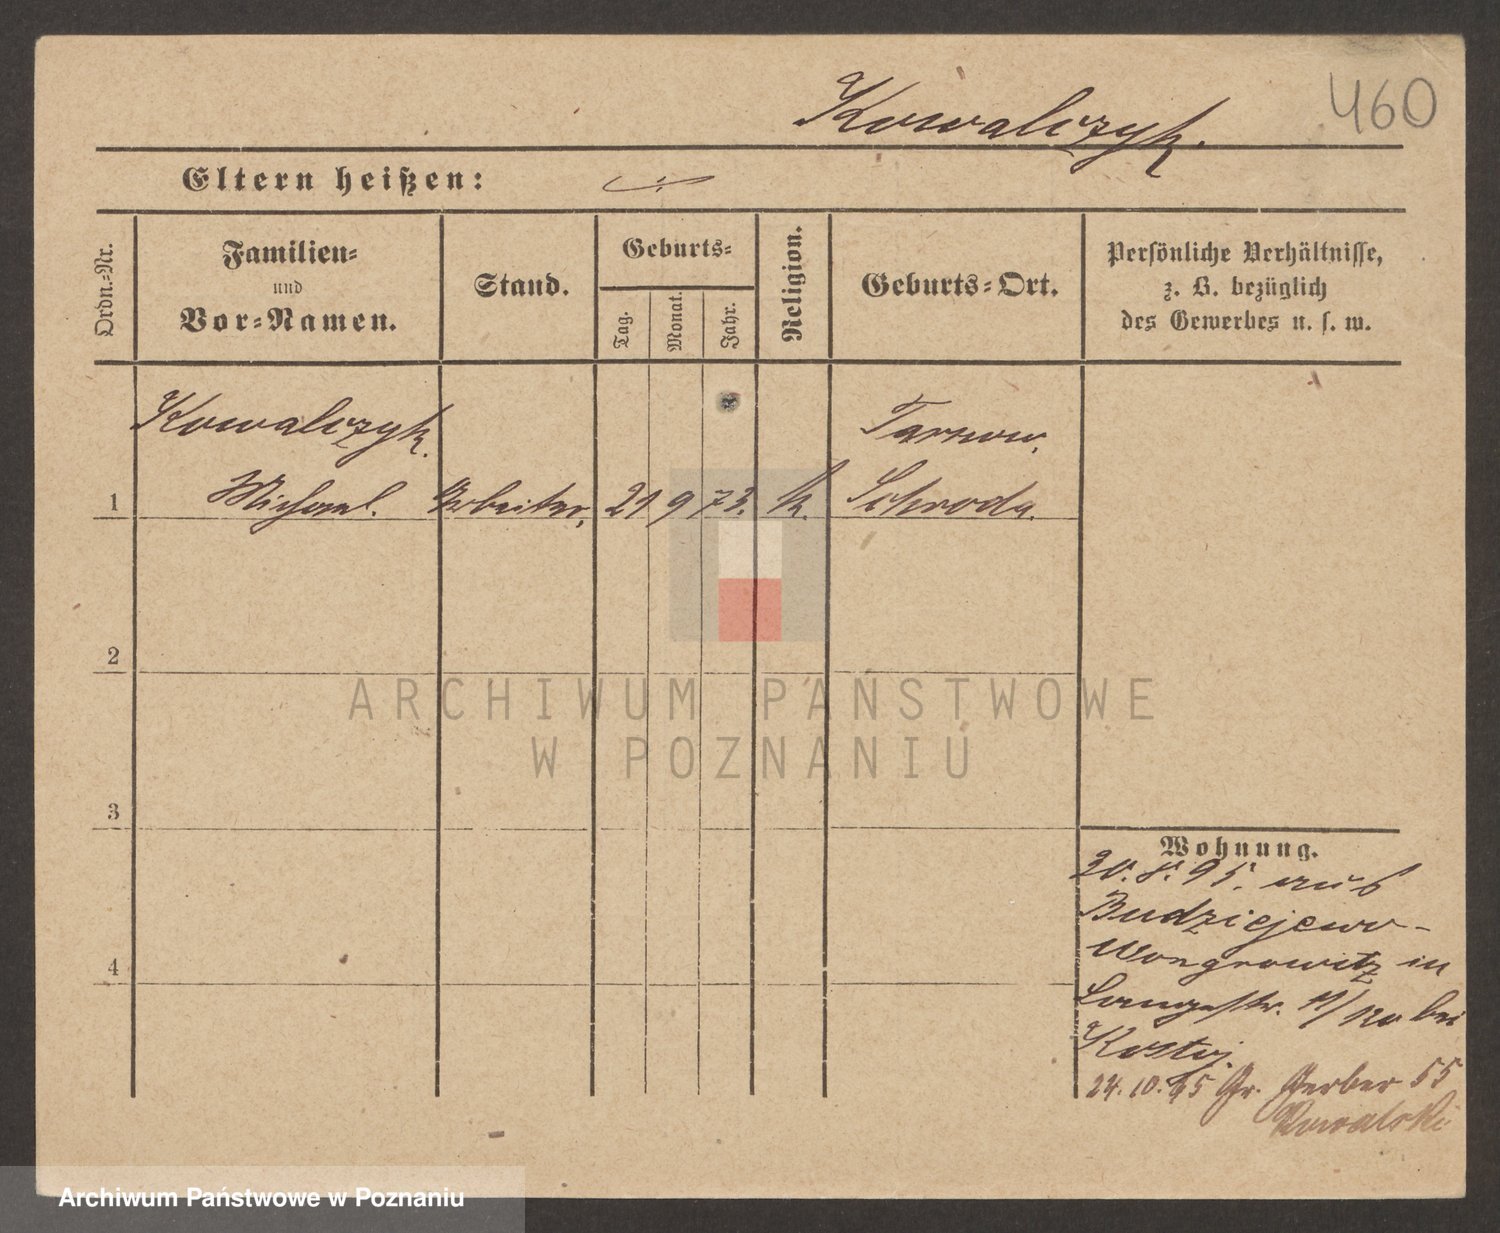 460
Kowalczyk.
Eltern heißen:
Ordn.-Nr.
Familien-
und
Vor-Namen.
Stand.
Geburts-
Tag.
Monat.
Jahr.
Religion.
Geburts-Ort.
Persönliche Verhältnisse,
z. B. bezüglich
des Gewerbes u. s. w.
Kowalczyk.
Tarnow,
1
Michael.
Arbeiter,
21
9
73.
k.
Schroda.
2
3
4
Wohnung.
20. 8. 95. aus
Budziejewo-
Wongrowitz in
Langestr. 11/12 bei
24. 10. 95 Gr. Gerber 55
Kowalski
ARCHIWUM PAŃSTWOWE
W POZNANIU
Archiwum Państwowe w Poznaniu